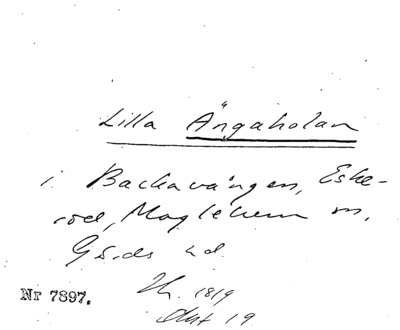 Lilla Ängaholan
i Backavången, Eske-
röd, Maglehem sn,
Gärds hd.
Nr 7397. 1819
Akt 19